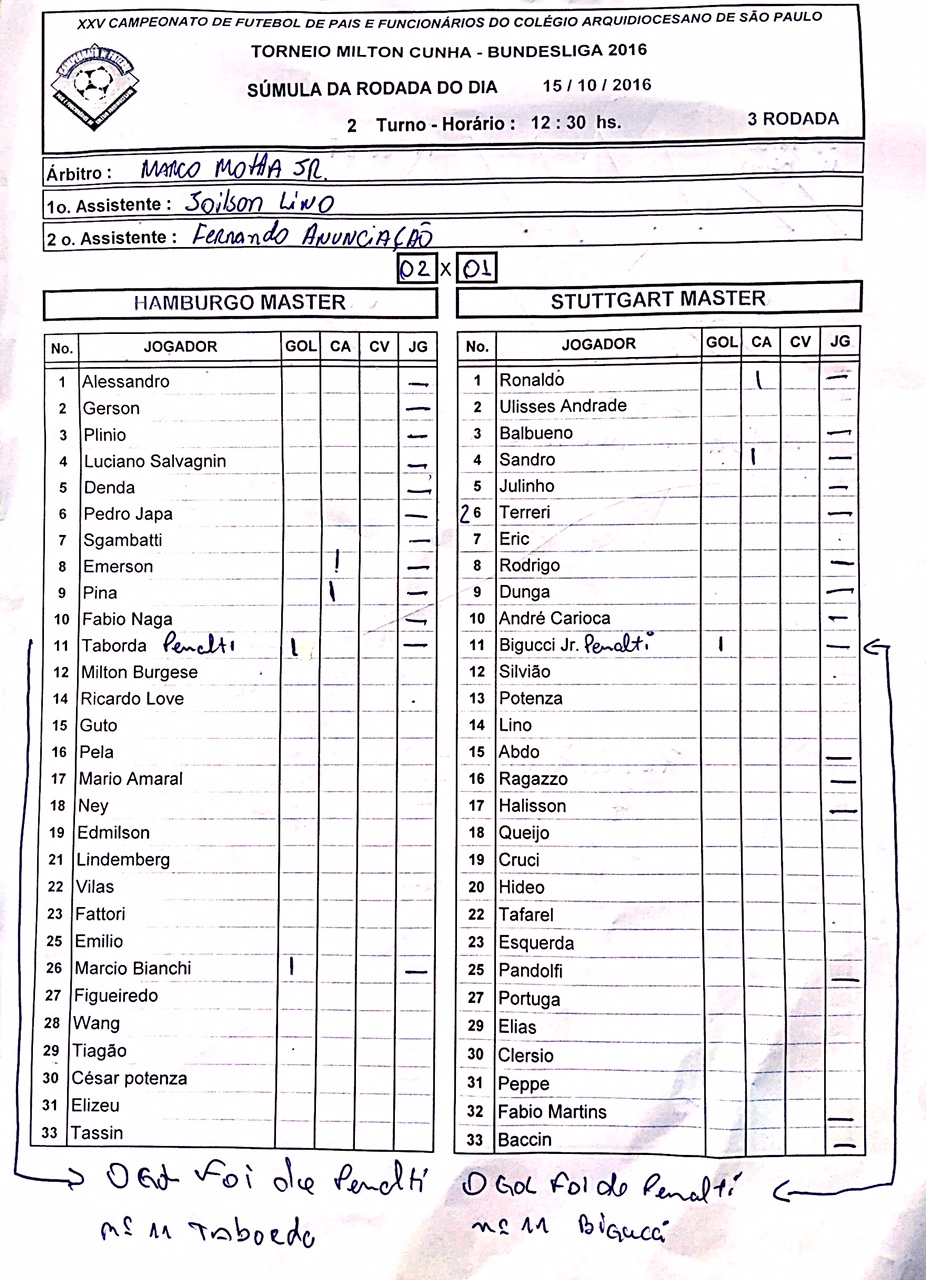 XXV CAMPEONATO DE FUTEBOL DE PAIS E FUNCIONÁRIOS DO COLÉGIO ARQUIDIOCESANO DE SÃO PAULO
TORNEIO MILTON CUNHA - BUNDESLIGA 2016
SÚMULA DA RODADA DO DIA 15 / 10 / 2016
2 Turno - Horário : 12 : 30 hs. 3 RODADA
Árbitro : MARCO MOTTA JR.
1o. Assistente : Joilson Lino
2 o. Assistente : Fernando ANUNCIAÇÃO
02 x 01
HAMBURGO MASTER
No. JOGADOR GOL CA CV JG
1 Alessandro —
2 Gerson —
3 Plinio —
4 Luciano Salvagnin —
5 Denda —
6 Pedro Japa —
7 Sgambatti —
8 Emerson ! —
9 Pina I —
10 Fabio Naga —
11 Taborda Penalti I —
12 Milton Burgese
14 Ricardo Love
15 Guto
16 Pela
17 Mario Amaral
18 Ney
19 Edmilson
21 Lindemberg
22 Vilas
23 Fattori
25 Emilio
26 Marcio Bianchi I —
27 Figueiredo
28 Wang
29 Tiagão
30 César potenza
31 Elizeu
33 Tassin
O Gol Foi de Penalti
nº 11 Taborda
STUTTGART MASTER
No. JOGADOR GOL CA CV JG
1 Ronaldo I —
2 Ulisses Andrade
3 Balbueno —
4 Sandro I —
5 Julinho —
26 Terreri —
7 Eric
8 Rodrigo —
9 Dunga —
10 André Carioca —
11 Bigucci Jr. Penalti I —
12 Silvião
13 Potenza
14 Lino
15 Abdo —
16 Ragazzo —
17 Halisson —
18 Queijo
19 Cruci
20 Hideo
22 Tafarel
23 Esquerda
25 Pandolfi —
27 Portuga
29 Elias
30 Clersio
31 Peppe
32 Fabio Martins —
33 Baccin —
O Gol Foi de Penalti
nº 11 Bigucci